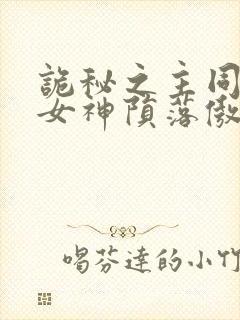 詭秘之主同
女神隕落傲
喝芬達的小竹